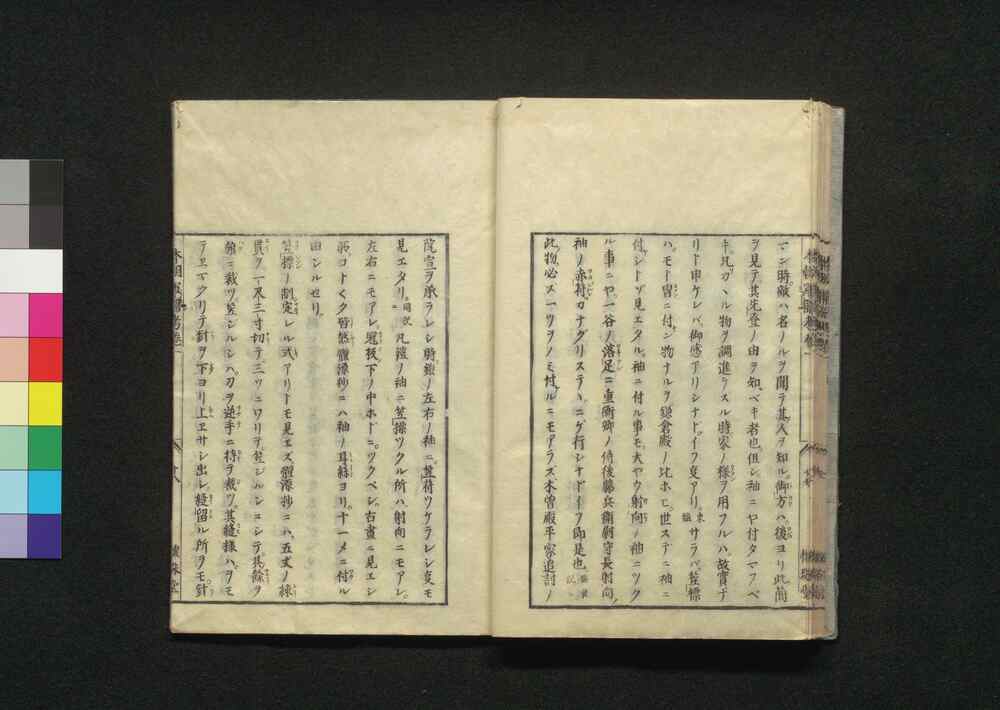 マシ時敵ハ名ノルヲ聞テ其人ヲ知ル。御方ハ後ヨリ此簡
ヲ見テ其先登ノ由ヲ知ベキ者也但シ袖ニヤ付タマフベ
キ。凡カヽル物ヲ調進ラスル時家ノ様ヲ用フルハ。故實ナ
リト申ケレバ御感アリシナドイフ変アリ。東鑑サラバ笠標
ハ。モト冑ニ付シ物ナルヲ鎌倉殿ノ比ホヒ世ステニ袖ニ
付シトゾ見エタル。袖ニ付ル事モ大ヤウ射向ノ袖ニツク
ル事ニヤ一谷ノ落足ニ重衡卿ノ侍後藤兵衛尉守長射向ノ
袖ノ赤符カナグリステヽニゲ行シナドイフ即是也
此物必ス一ツヲノミ付ルニモアラズ木曽殿平家追討ノ
院宣ヲ承ラレシ時鎧ノ左右ノ袖ニ。笠符ツケラレシ変モ
見エタリ。同次凡鎧ノ袖ニ笠標ツクル所ハ射向ニモアレ。
左右ニモアレ冠板下ノ中ホドニ。ツクベシ。古畫ニ見エシ
所コトゴトク皆然體源抄ニハ袖ノ耳絲ヨリ。十一メニ付ル
由シルセリ。
笠標ノ制定レル式アリトモ見エズ體源抄ニハ。五丈ノ絹
貫ヲ一尺三寸切テ三ツニワリテ。笠ジルシニシテ其餘ヲ
旛ニ裁ツ。笠シルシハ。刀ヲ逆手ニ持ヲ裁ツ。其縫様ハ。ヲモ
テエマクリテ針ヲ下ヨリ上エサシ出シ。縫留ル所ヲモ針